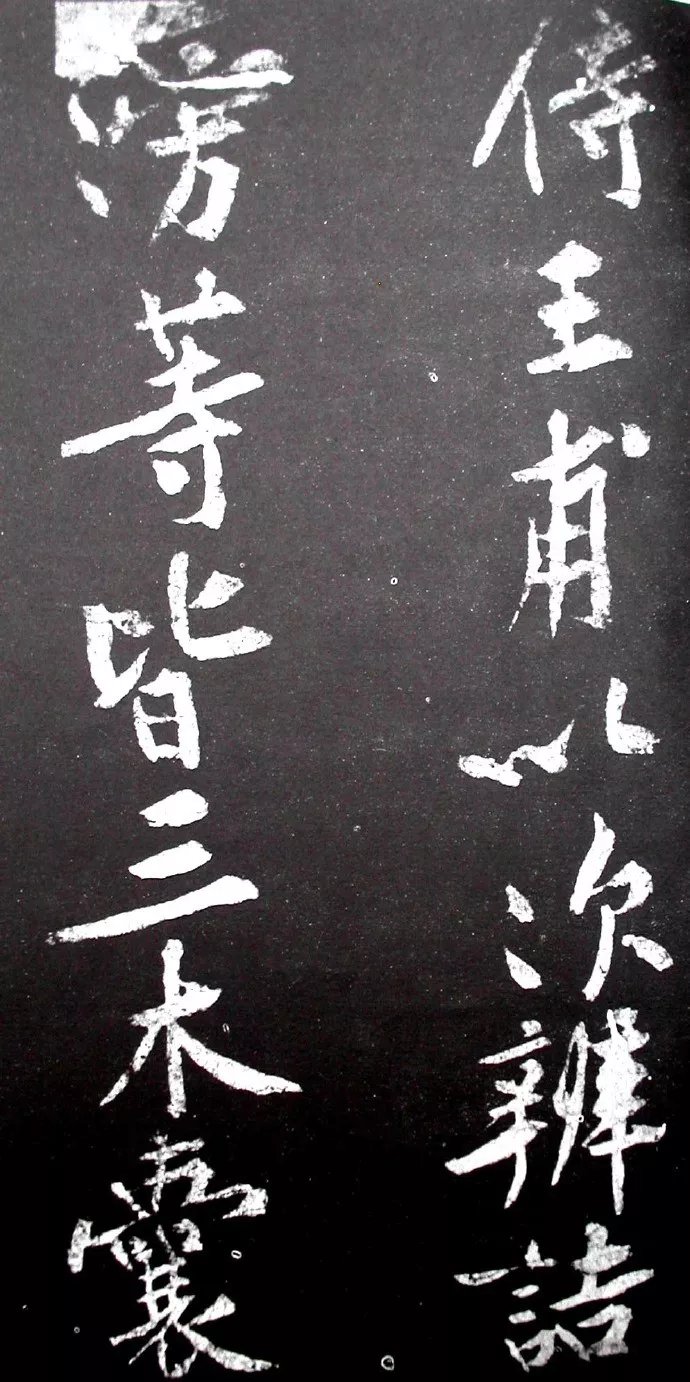 侍王甫以次辨詰
滂等皆三木囊